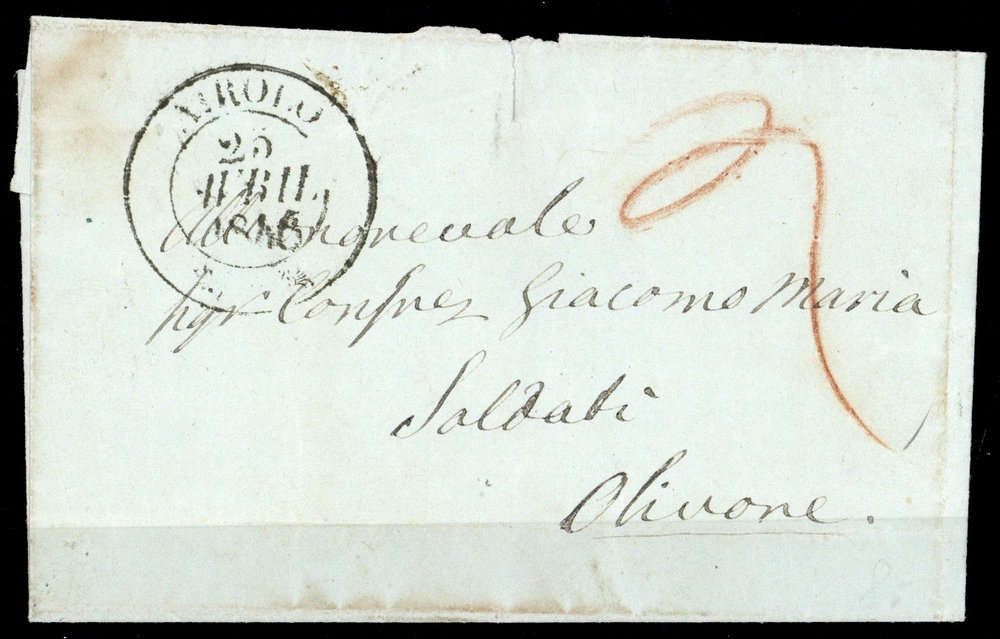 AIROLO
25
AVRIL
All'onorevole
Sigr Giacomo Maria
Soldati
Olivone.